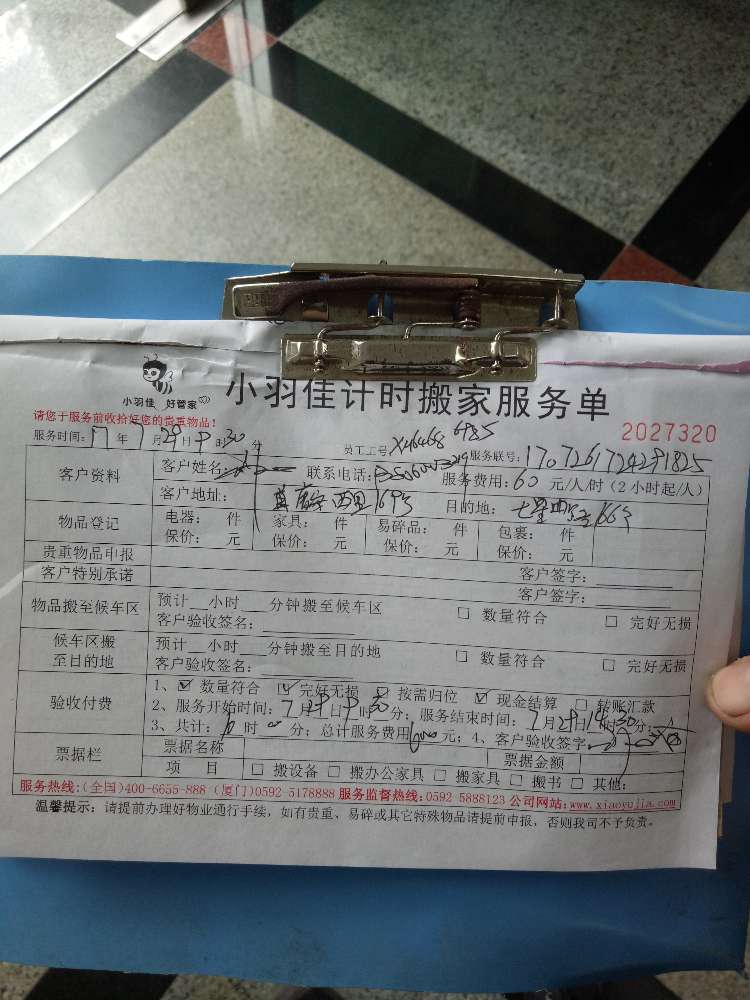 小羽佳 好管家
小羽佳计时搬家服务单
请您于服务前收拾好您的贵重物品!
2027320
服务时间: 17 年 7 月 29 日 9 时 30 分 员工工号 服务联号:
客户资料 客户姓名: 联系电话: 服务费用: 60 元/人/时(2小时起/人)
客户地址: 目的地:
物品登记 电器: 件 家具: 件 易碎品: 件 包裹: 件
保价: 元 保价: 元 保价: 元 保价: 元
贵重物品申报 客户签字:
客户特别承诺 客户签字:
物品搬至候车区 预计__小时__分钟搬至候车区 □ 数量符合 □ 完好无损
客户验收签名:
候车区搬至目的地 预计__小时__分钟搬至目的地 □ 数量符合 □ 完好无损
客户验收签名:
验收付费 1、☑ 数量符合 ☑ 完好无损 按需归位 ☑ 现金结算 □ 转账汇款
2、服务开始时间: 7 月 29 日 9 时 30 分; 服务结束时间: 7 月 29 日 时 30 分;
3、共计: 10 时 分; 总计服务费用 600 元; 4、客户验收签字:
票据栏 票据名称 票据金额
项 目 □ 搬设备 □ 搬办公家具 □ 搬家具 □ 搬书 □ 其他:
服务热线:(全国)400-6655-888 (厦门)0592-5178888 服务监督热线:0592-5888123 公司网站:www.xiaoyujia.com
温馨提示: 请提前办理好物业通行手续, 如有贵重、易碎或其它特殊物品请提前申报, 否则我司不予负责。